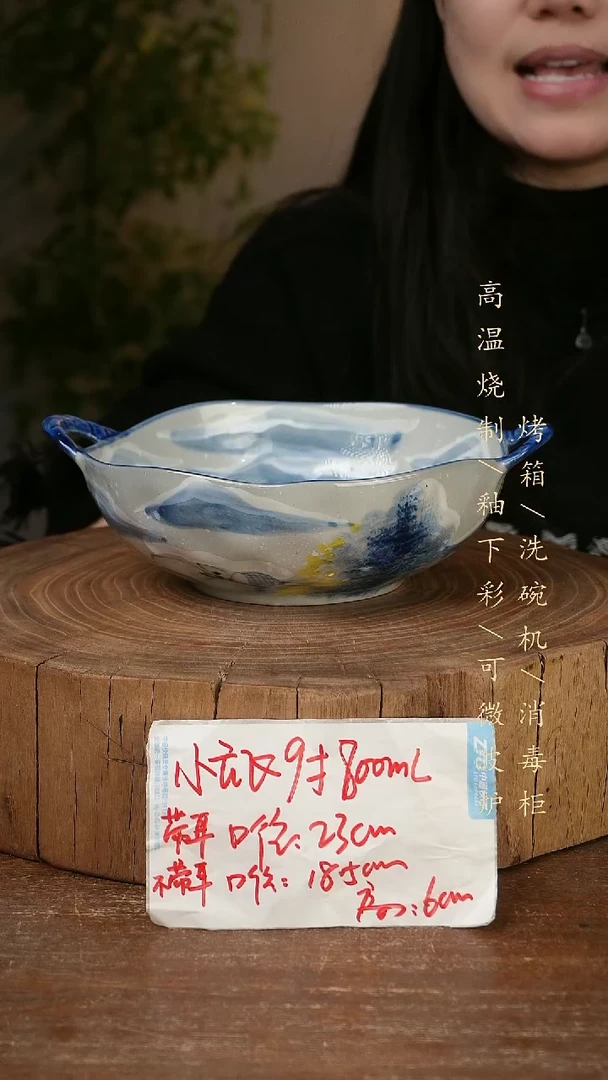 高温烧制/釉下彩/可微波炉
烤箱/洗碗机/消毒柜
9寸 800mL
带耳 口径:23cm
不带耳 口径:18.5cm
高:6cm